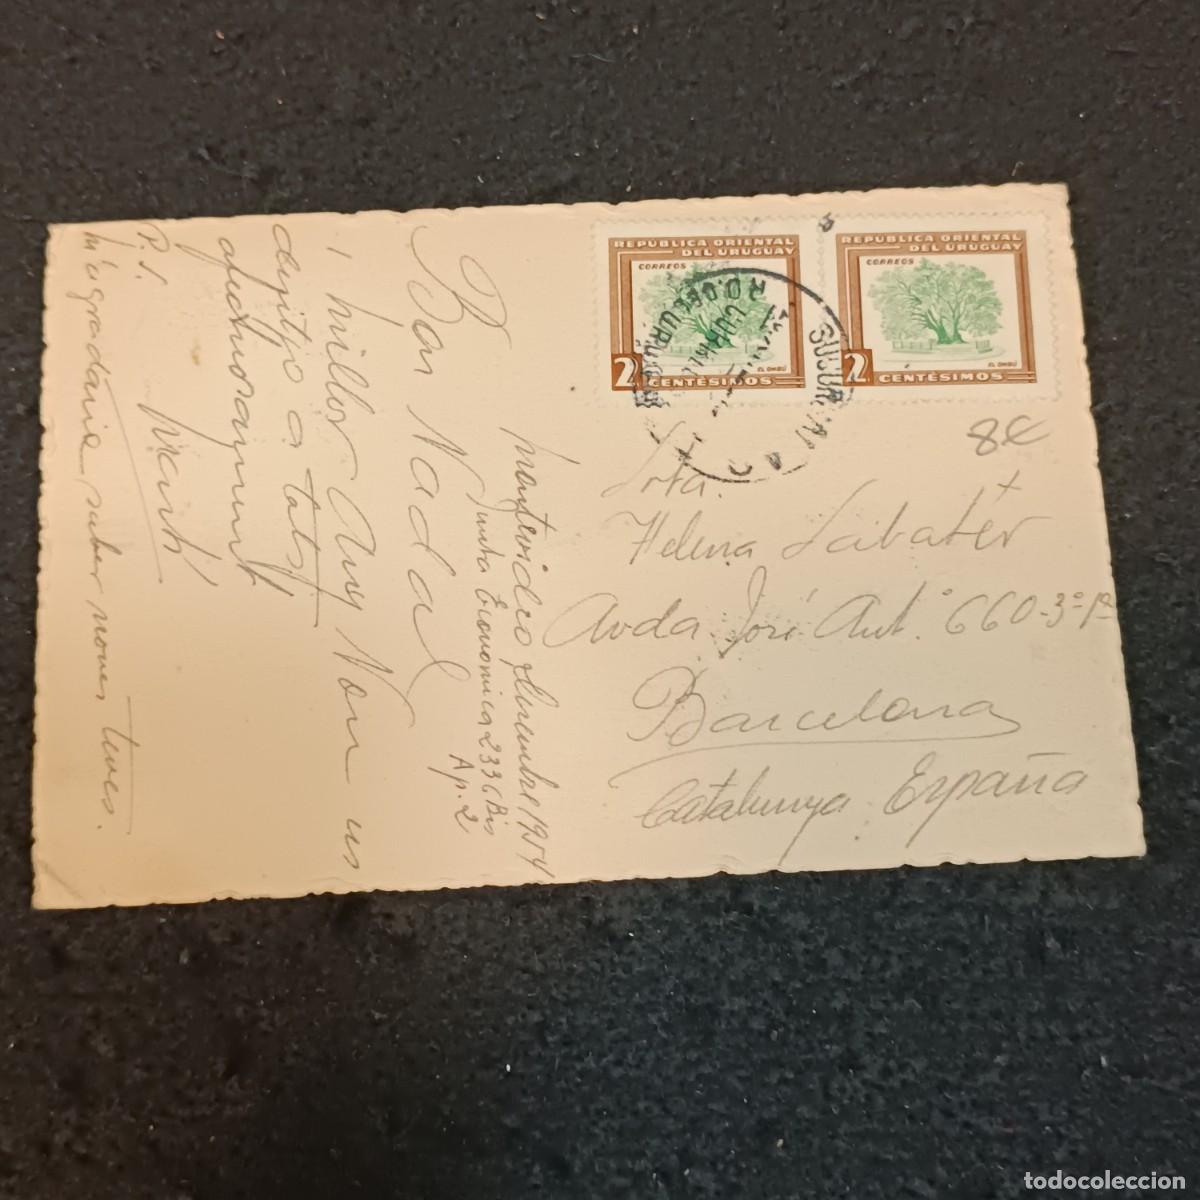 REPUBLICA ORIENTAL
DEL URUGUAY
CORREOS
EL OMBÚ
2 CENTÉSIMOS
REPUBLICA ORIENTAL
DEL URUGUAY
CORREOS
EL OMBÚ
2 CENTÉSIMOS
SUCURSAL
R.O. DEL URUGUAY
8€
Montevideo 1954
Economica 2336 Bis
Ap. 2
Bon Nadal
i millor Any Nou us
desitjo a tots
afectuosament
Martí
P.S.
M'agradaria saber noves teves.
Srta.
Helena Sabatér
Avda José Ant.º 660-3º 1ª
Barcelona
Catalunya España
todocoleccion